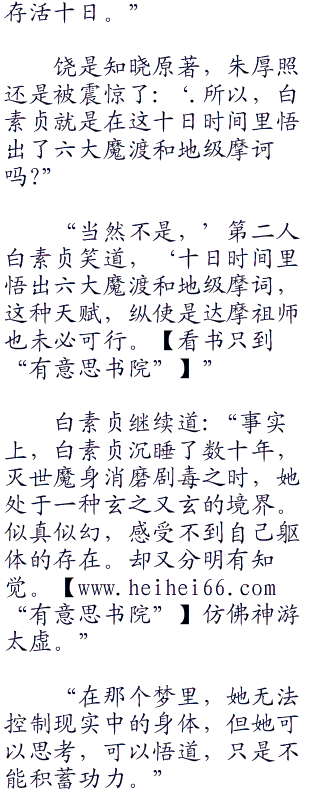 存活十日。”
饶是知晓原著，朱厚照
还是被震惊了：‘.所以，白
素贞就是在这十日时间里悟
出了六大魔渡和地级摩诃
吗?”
“当然不是，’第二人
白素贞笑道，‘十日时间里
悟出六大魔渡和地级摩词，
这种天赋，纵使是达摩祖师
也未必可行。【看书只到
“有意思书院”】”
白素贞继续道：“事实
上，白素贞沉睡了数十年，
灭世魔身消磨剧毒之时，她
处于一种玄之又玄的境界。
似真似幻，感受不到自己躯
体的存在。却又分明有知
觉。【www.heihei66.com
“有意思书院”】仿佛神游
太虚。”
“在那个梦里，她无法
控制现实中的身体，但她可
以思考，可以悟道，只是不
能积蓄功力。”